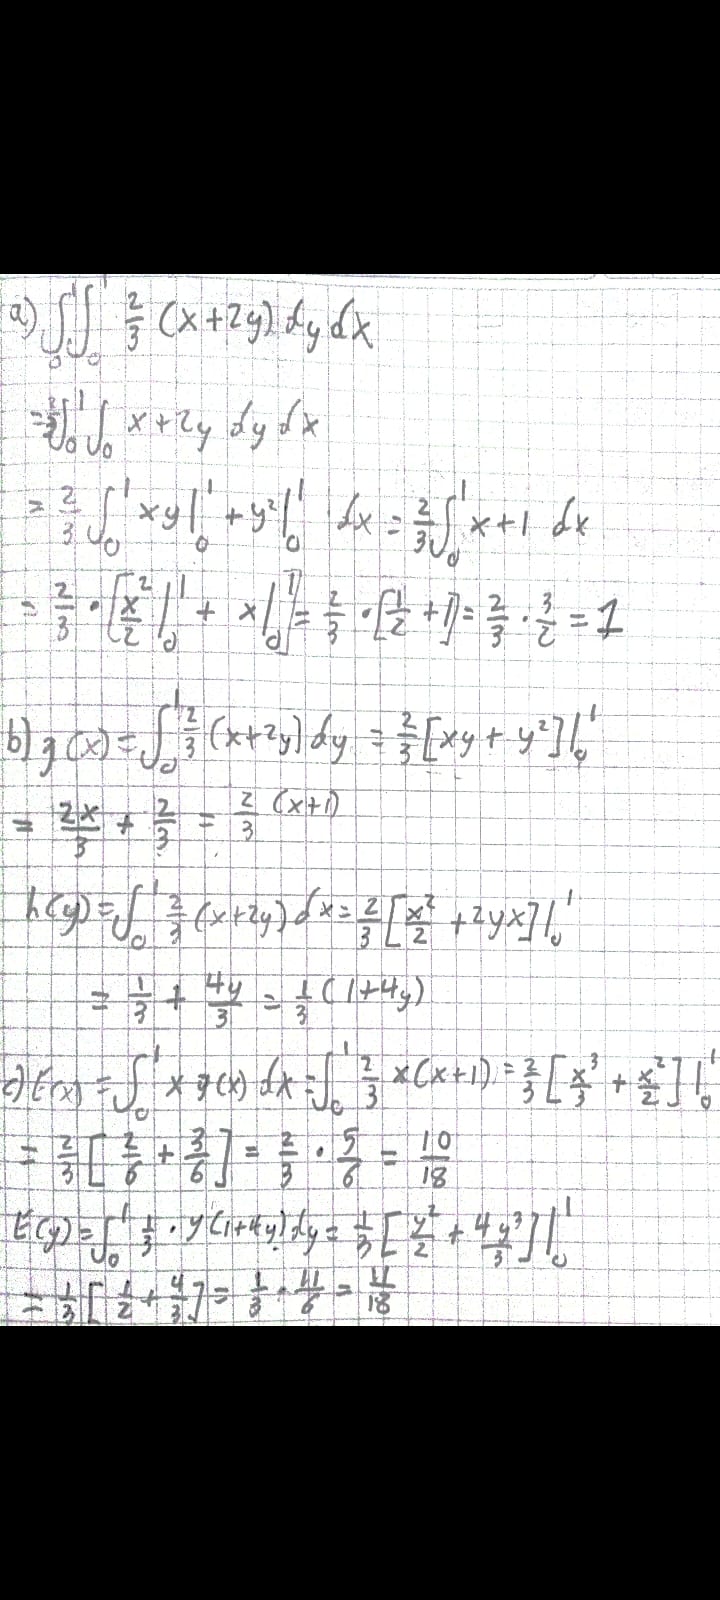 a) ∫₀¹∫₀¹ 2/3 (x+2y) dy dx
= 2/3 ∫₀¹∫₀¹ x+2y dy dx
= 2/3 ∫₀¹ xy|₀¹ + y²|₀¹ dx = 2/3 ∫₀¹ x+1 dx
= 2/3 · [x²/2|₀¹ + x|₀¹] = 2/3 · [1/2 + 1] = 2/3 · 3/2 = 1
b) g(x) = ∫₀¹ 2/3 (x+2y) dy = 2/3 [xy + y²]|₀¹
= 2x/3 + 2/3 = 2/3 (x+1)
h(y) = ∫₀¹ 2/3 (x+2y) dx = 2/3 [x²/2 + 2yx]|₀¹
= 1/3 + 4y/3 = 1/3 (1+4y)
c) E(x) = ∫₀¹ x g(x) dx = ∫₀¹ 2/3 x(x+1) = 2/3 [x³/3 + x²/2]|₀¹
= 2/3 [2/6 + 3/6] = 2/3 · 5/6 = 10/18
E(y) = ∫₀¹ 1/3 · y(1+4y) dy = 1/3 [y²/2 + 4y³/3]|₀¹
= 1/3 [1/2 + 4/3] = 1/3 · 11/6 = 11/18